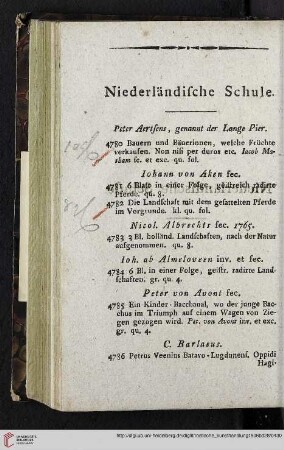 Niederländische Schule.
Peter Aertsens, genannt der Lange Pier.
4780 Bauern und Bäuerinnen, welche Früchte
verkaufen. Non nisi per duros etc. Iacob Ma-
tham sc. et exc. qu. fol.
Iohann van Aken fec.
4781 6 Blatt in einer Folge, geistreich radirte
Pferde. qu. 8.
4782 Die Landschaft mit dem gesattelten Pferde
im Vorgrunde. kl. qu. fol.
Nicol. Albrechts fec. 1765.
4783 3 Bl. holländ. Landschaften, nach der Natur
aufgenommen. qu. 8.
Ioh. ab Almeloveen inv. et fec.
4784 6 Bl. in einer Folge, geistr. radirte Land-
schaften. gr. qu. 4.
Peter van Avont fec.
4785 Ein Kinder-Bacchanal, wo der junge Bac-
chus im Triumph auf einem Wagen von Zie-
gen gezogen wird. Pet. van Avont inv. et exc.
gr. qu. 4.
C. Barlaeus.
4786 Petrus Veenius Batavo-Lugdunens. Oppidi
Hagi-